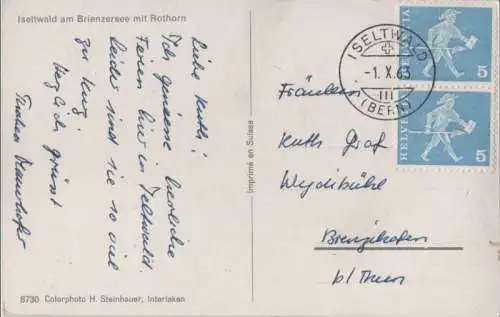 Iseltwald am Brienzersee mit Rothorn
Liebe Ruth!
Ich geniesse herrliche
Ferien hier in Iseltwald.
Leider sind sie so viel
zu kurz.
Herzlich grüsst
Imprimé en Suisse
8730 Colorphoto H. Steinhauer, Interlaken
ISELTWALD
-1.X.63
III
(BERN)
HELVETIA
5
HELVETIA
5
Fräulein
Ruth Graf
Weydibühl
Brenzikofen
b/Thun